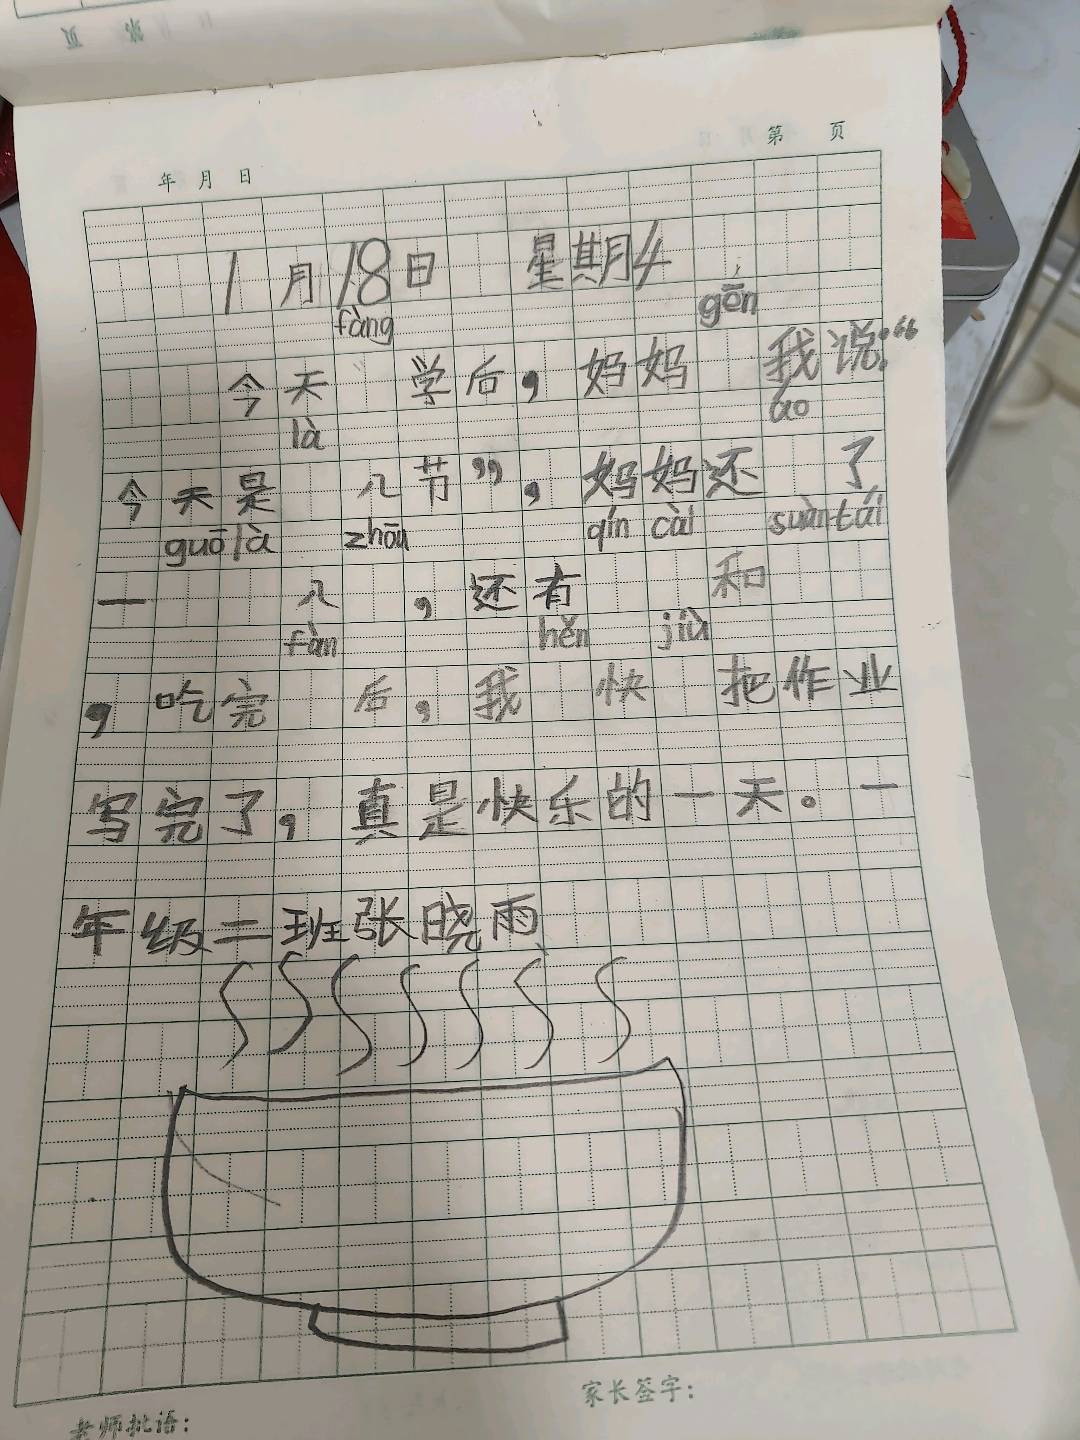 年 月 日
第 页
1月18日 星期4
fàng gēn
今天 学后，妈妈 我说：“
là áo
今天是 八节”，妈妈还 了
guō là zhōu qín cài suàn tái
一 八 ，还有 和
fàn hěn jiù
，吃完 后，我 快 把作业
写完了，真是快乐的一天。一
年级二班张晓雨
家长签字：
老师批语：